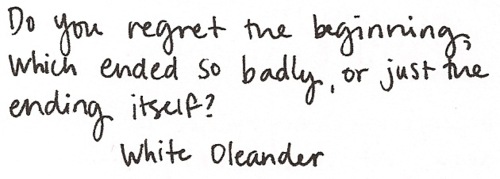 Do you regret the beginning,
which ended so badly, or just the
ending itself?
White Oleander